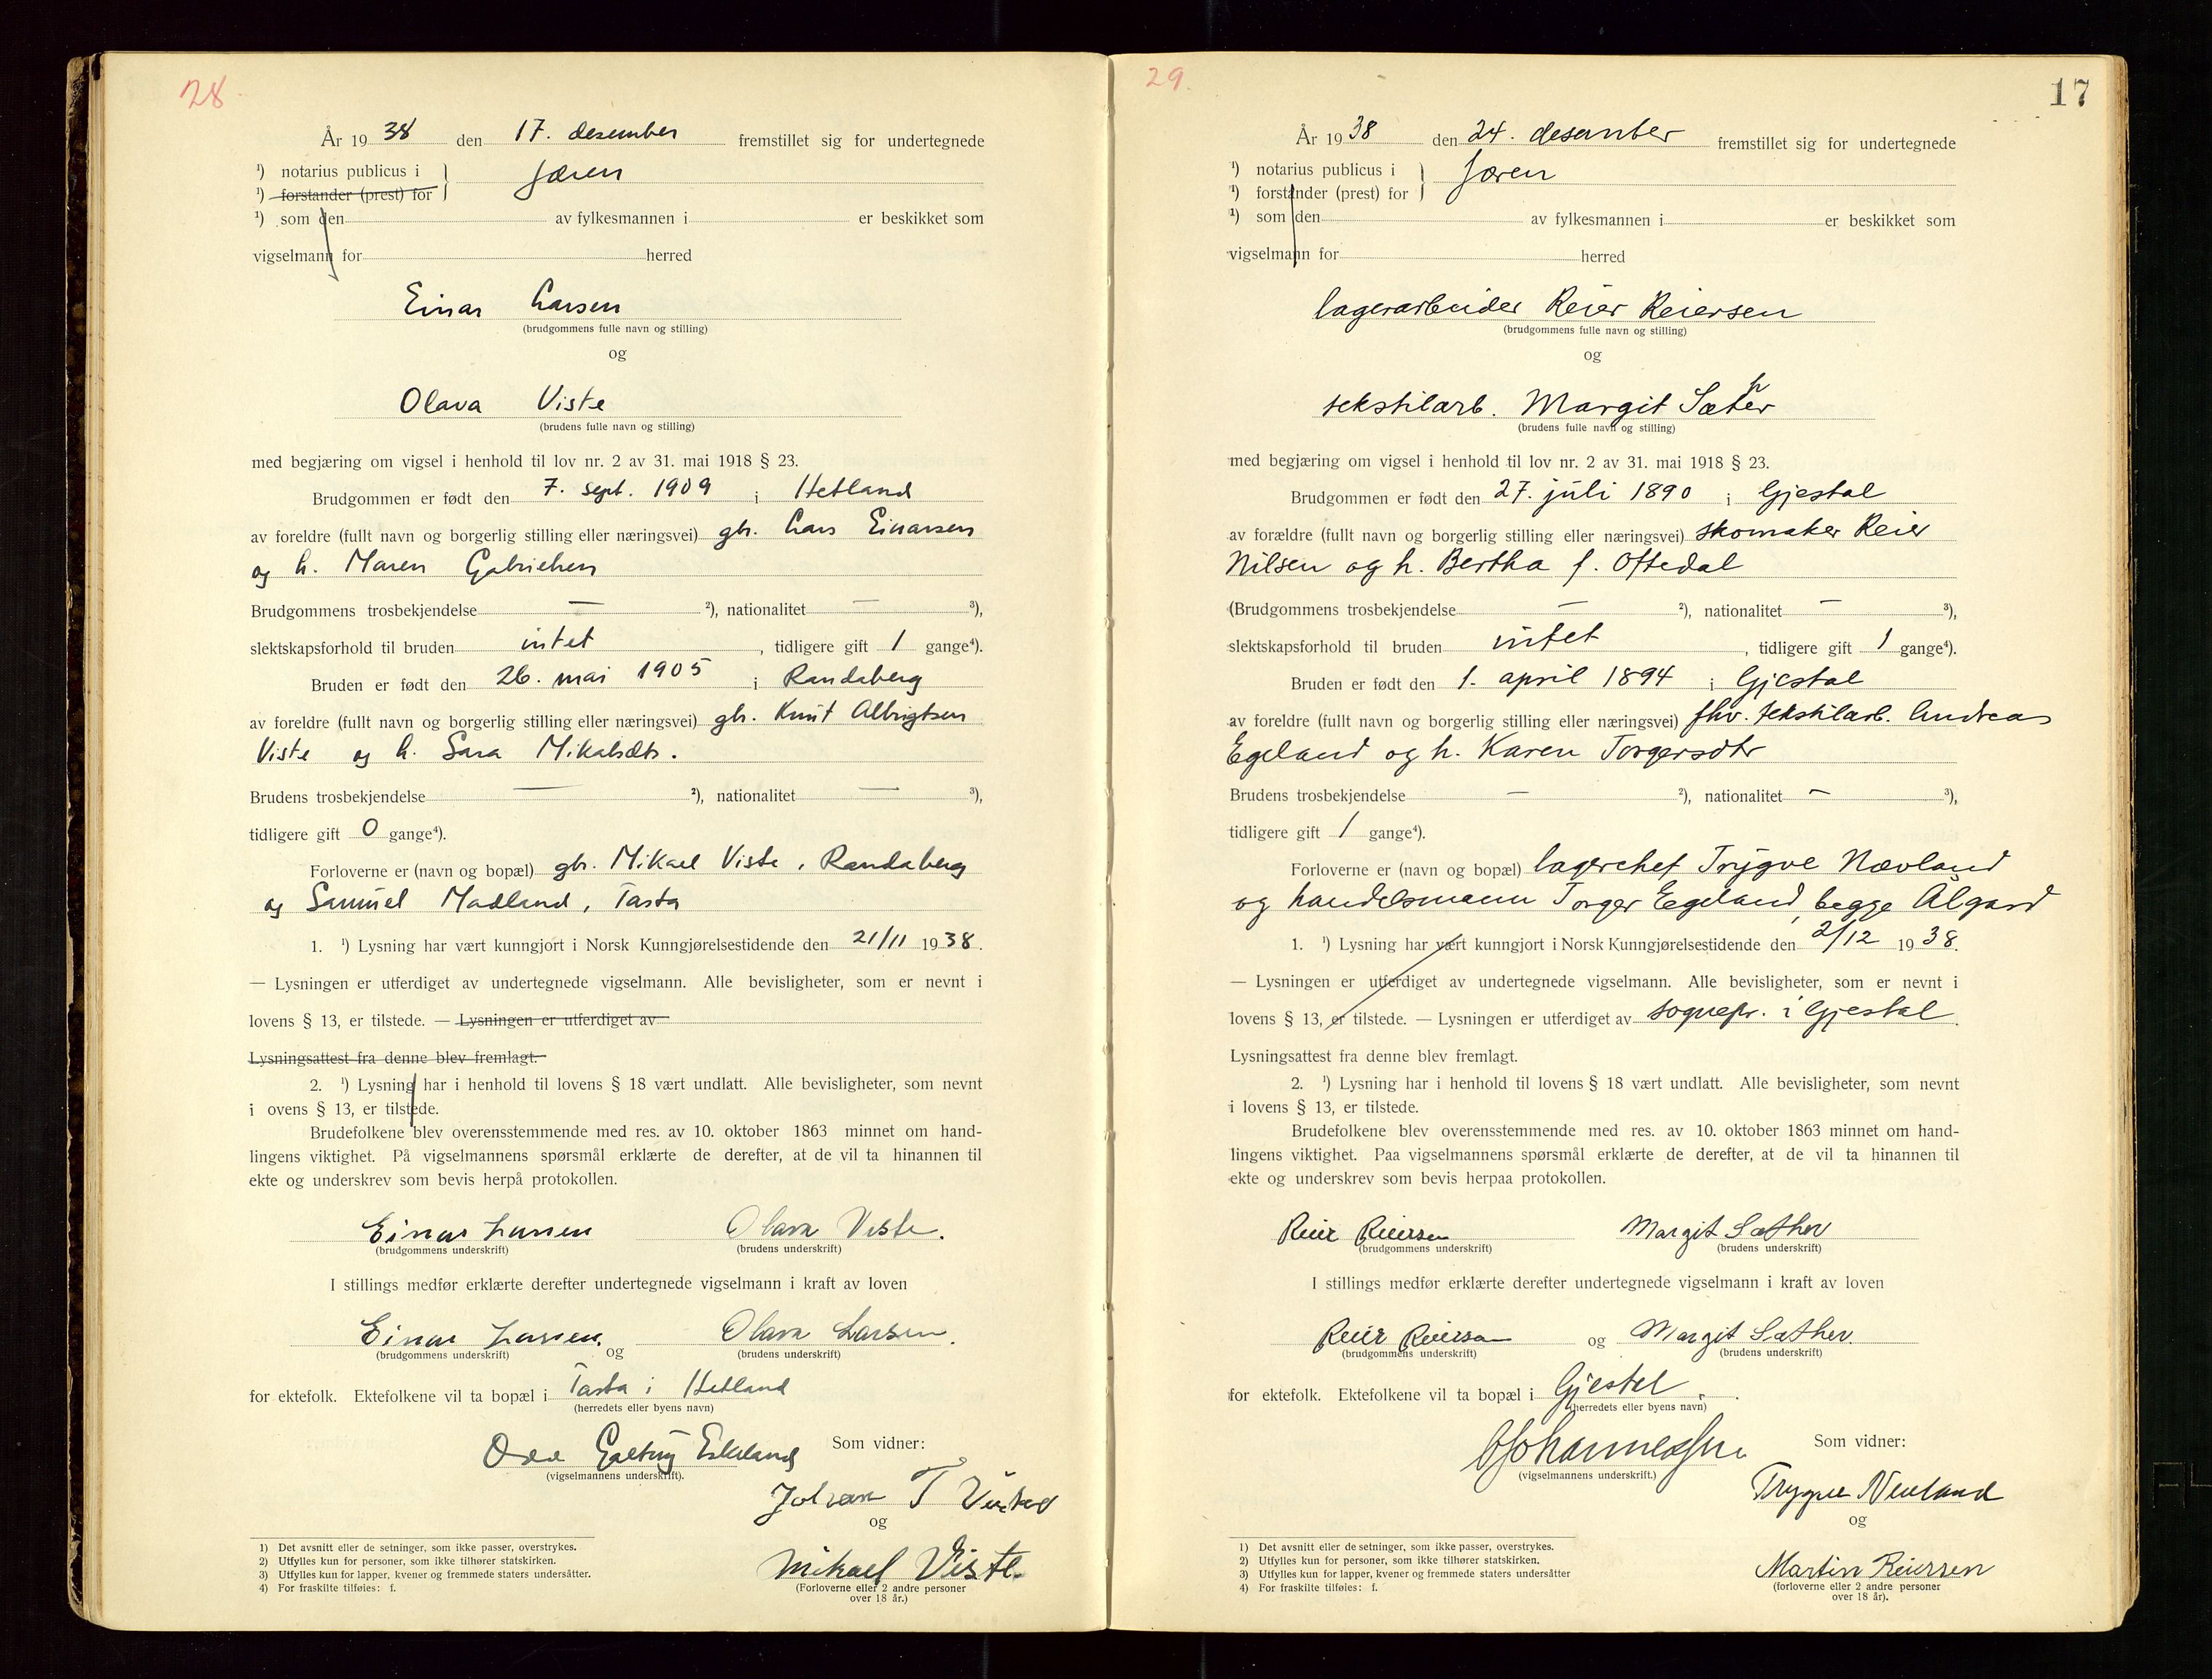 28
År 1938 den 17. desember fremstillet sig for undertegnede
¹) notarius publicus i } Jæren
¹) forstander (prest) for
¹) som den av fylkesmannen i er beskikket som
vigselmann for herred
Einar Larsen
(brudgommens fulle navn og stilling)
og
Olava Viste
(brudens fulle navn og stilling)
med begjæring om vigsel i henhold til lov nr. 2 av 31. mai 1918 § 23.
Brudgommen er født den 7. sept. 1909 i Hetland
av foreldre (fullt navn og borgerlig stilling eller næringsvei) gbr. Lars Einarsen
og h. Maren Gabrielsen
Brudgommens trosbekjendelse — ²), nationalitet — ³),
slektskapsforhold til bruden intet, tidligere gift 1 gange⁴).
Bruden er født den 26. mai 1905 i Randaberg
av foreldre (fullt navn og borgerlig stilling eller næringsvei) gbr. Knut Albrigtsen
Viste og h. Sara Mikalsdtr.
Brudens trosbekjendelse — ²), nationalitet — ³),
tidligere gift 0 gange⁴).
Forloverne er (navn og bopæl) gbr. Mikael Viste, Randaberg
og Samuel Madland, Tasta
1. ¹) Lysning har vært kunngjort i Norsk Kunngjørelsestidende den 21/11 1938.
— Lysningen er utferdiget av undertegnede vigselmann. Alle bevisligheter, som er nevnt i
lovens § 13, er tilstede. — Lysningen er utferdiget av
Lysningsattest fra denne blev fremlagt.
2. ¹) Lysning har i henhold til lovens § 18 vært undlatt. Alle bevisligheter, som nevnt
i ovens § 13, er tilstede.
Brudefolkene blev overensstemmende med res. av 10. oktober 1863 minnet om hand-
lingens viktighet. På vigselmannens spørsmål erklærte de derefter, at de vil ta hinannen til
ekte og underskrev som bevis herpå protokollen.
Einar Larsen Olava Viste.
(brudgommens underskrift) (brudens underskrift)
I stillings medfør erklærte derefter undertegnede vigselmann i kraft av loven
Einar Larsen. og Olava Larsen.
(brudgommens underskrift) (brudens underskrift)
for ektefolk. Ektefolkene vil ta bopæl i Tasta i Hetland
(herredets eller byens navn)
Odd Galtung Eskeland Som vidner:
(vigselmannens underskrift).
Johan T
og
Mikael Viste.
(Forloverne eller 2 andre personer
over 18 år.)
1) Det avsnitt eller de setninger, som ikke passer, overstrykes.
2) Utfylles kun for personer, som ikke tilhører statskirken.
3) Utfylles kun for lapper, kvener og fremmede staters undersåtter.
4) For fraskilte tilføies: f.
29.
17
År 1938 den 24. desember fremstillet sig for undertegnede
¹) notarius publicus i } Jæren
¹) forstander (prest) for
¹) som den av fylkesmannen i er beskikket som
vigselmann for herred
lagerarbeider Reier Reiersen
(brudgommens fulle navn og stilling)
og
tekstilarb. Margit Sæther
(brudens fulle navn og stilling)
med begjæring om vigsel i henhold til lov nr. 2 av 31. mai 1918 § 23.
Brudgommen er født den 27. juli 1890 i Gjestal
av forældre (fullt navn og borgerlig stilling eller næringsvei) skomaker Reier
Nilsen og h. Bertha f. Oftedal
(Brudgommens trosbekjendelse — ²), nationalitet — ³),
slektskapsforhold til bruden intet, tidligere gift 1 gange⁴).
Bruden er født den 1. april 1894 i Gjestal
av foreldre (fullt navn og borgerlig stilling eller næringsvei) fhv. tekstilarb. Andreas
Egeland og h. Karen Torgersdtr
Brudens trosbekjendelse — ²), nationalitet — ³),
tidligere gift 1 gange⁴).
Forloverne er (navn og bopæl) lagerchef Trygve Nævland
og handelsmann Torger Egeland, begge Ålgård
1. ¹) Lysning har vært kunngjort i Norsk Kunngjørelsestidende den 2/12 1938.
— Lysningen er utferdiget av undertegnede vigselmann. Alle bevisligheter, som er nevnt i
lovens § 13, er tilstede. — Lysningen er utferdiget av sognepr. i Gjestal.
Lysningsattest fra denne blev fremlagt.
2. ¹) Lysning har i henhold til lovens § 18 vært undlatt. Alle bevisligheter, som nevnt
i lovens § 13, er tilstede.
Brudefolkene blev overensstemmende med res. av 10. oktober 1863 minnet om hand-
lingens viktighet. Paa vigselmannens spørsmål erklærte de derefter, at de vil ta hinannen til
ekte og underskrev som bevis herpaa protokollen.
Reier Reiersen Margit Sæther
(brudgommens underskrift) (brudens underskrift)
I stillings medfør erklærte derefter undertegnede vigselmann i kraft av loven
Reier Reiersen og Margit Sæther.
(brudgommens underskrift) (brudens underskrift)
for ektefolk. Ektefolkene vil ta bopæl i Gjestal.
(herredets eller byens navn)
Som vidner:
(vigselmannens underskrift.)
Trygve Nævland
og
Martin Reiersen
(forloverne eller 2 andre personer
over 18 år).
1) Det avsnitt eller de setninger, som ikke passer, overstrykes.
2) Utfylles kun for personer, som ikke tilhører statskirken.
3) Utfylles kun for lapper, kvener og fremmede staters undersåtter
4) For fraskilte tilføies: f.